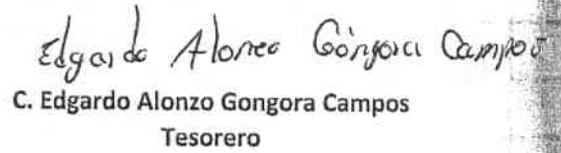 Edgardo Alonzo Góngora Campos
C. Edgardo Alonzo Gongora Campos
Tesorero